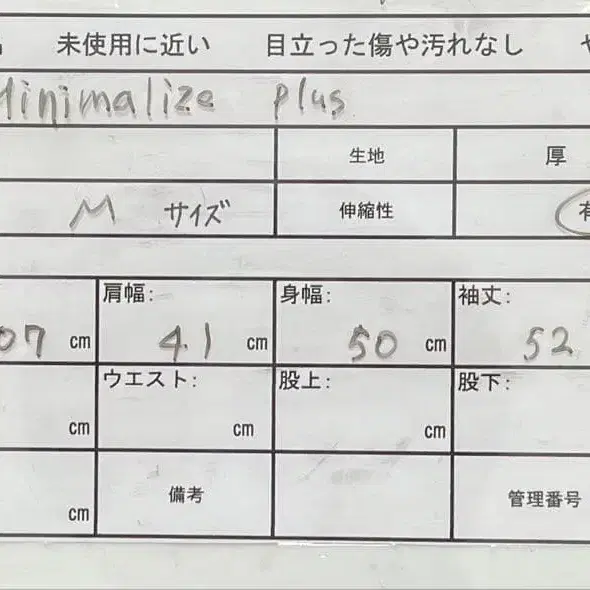 未使用に近い 目立った傷や汚れなし
Minimalize plus
生地 厚
M サイズ 伸縮性 有
肩幅: 身幅: 袖丈:
07 cm 41 cm 50 cm 52
ウエスト: 股上: 股下:
cm cm cm
cm 備考 管理番号